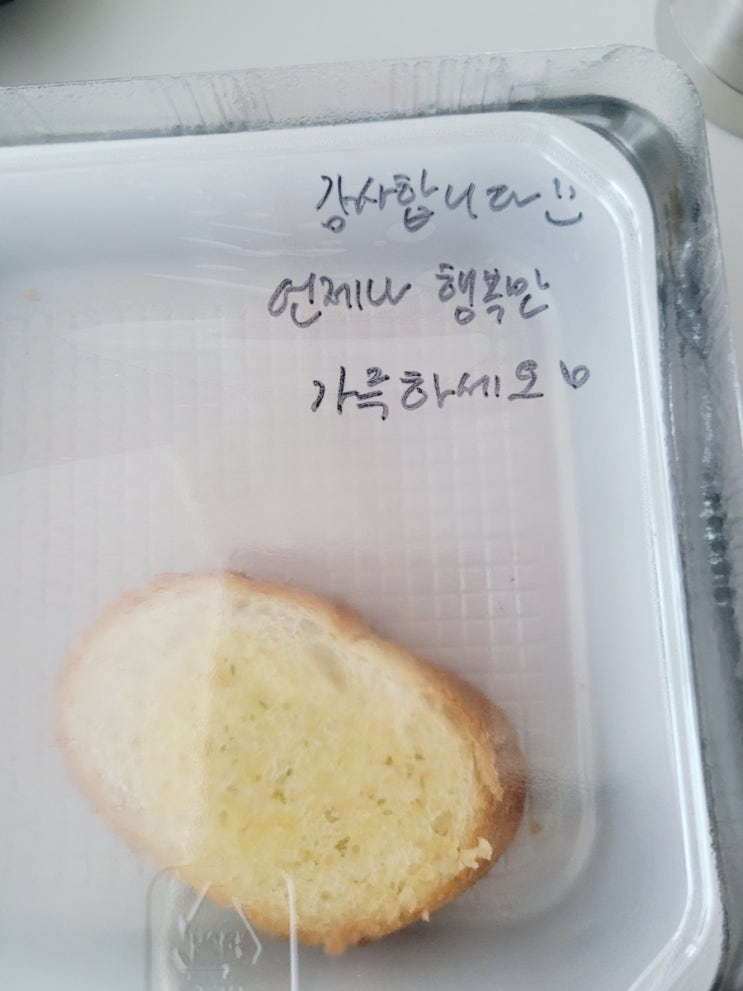 감사합니다!!
언제나 행복만
가득하세요♡